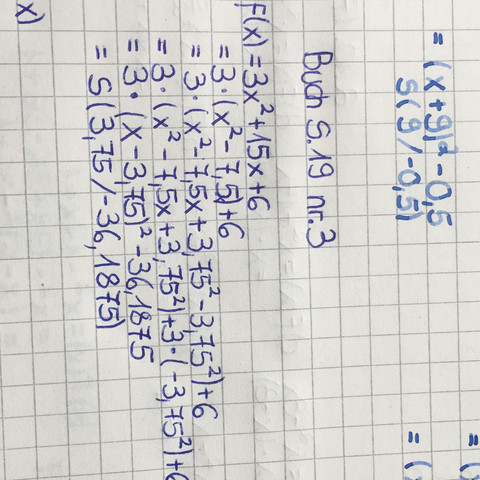 = (x+9)² - 0,5
S(9/-0,5)
Buch S.19 nr.3
f(x) = 3x² + 15x + 6
= 3·(x² - 7,5) + 6
= 3·(x² - 7,5x + 3,75² - 3,75²) + 6
= 3·(x² - 7,5x + 3,75²) + 3·(-3,75²) + 6
= 3·(x - 3,75)² - 36,1875
= S(3,75/-36,1875)
x)
= (
= (x